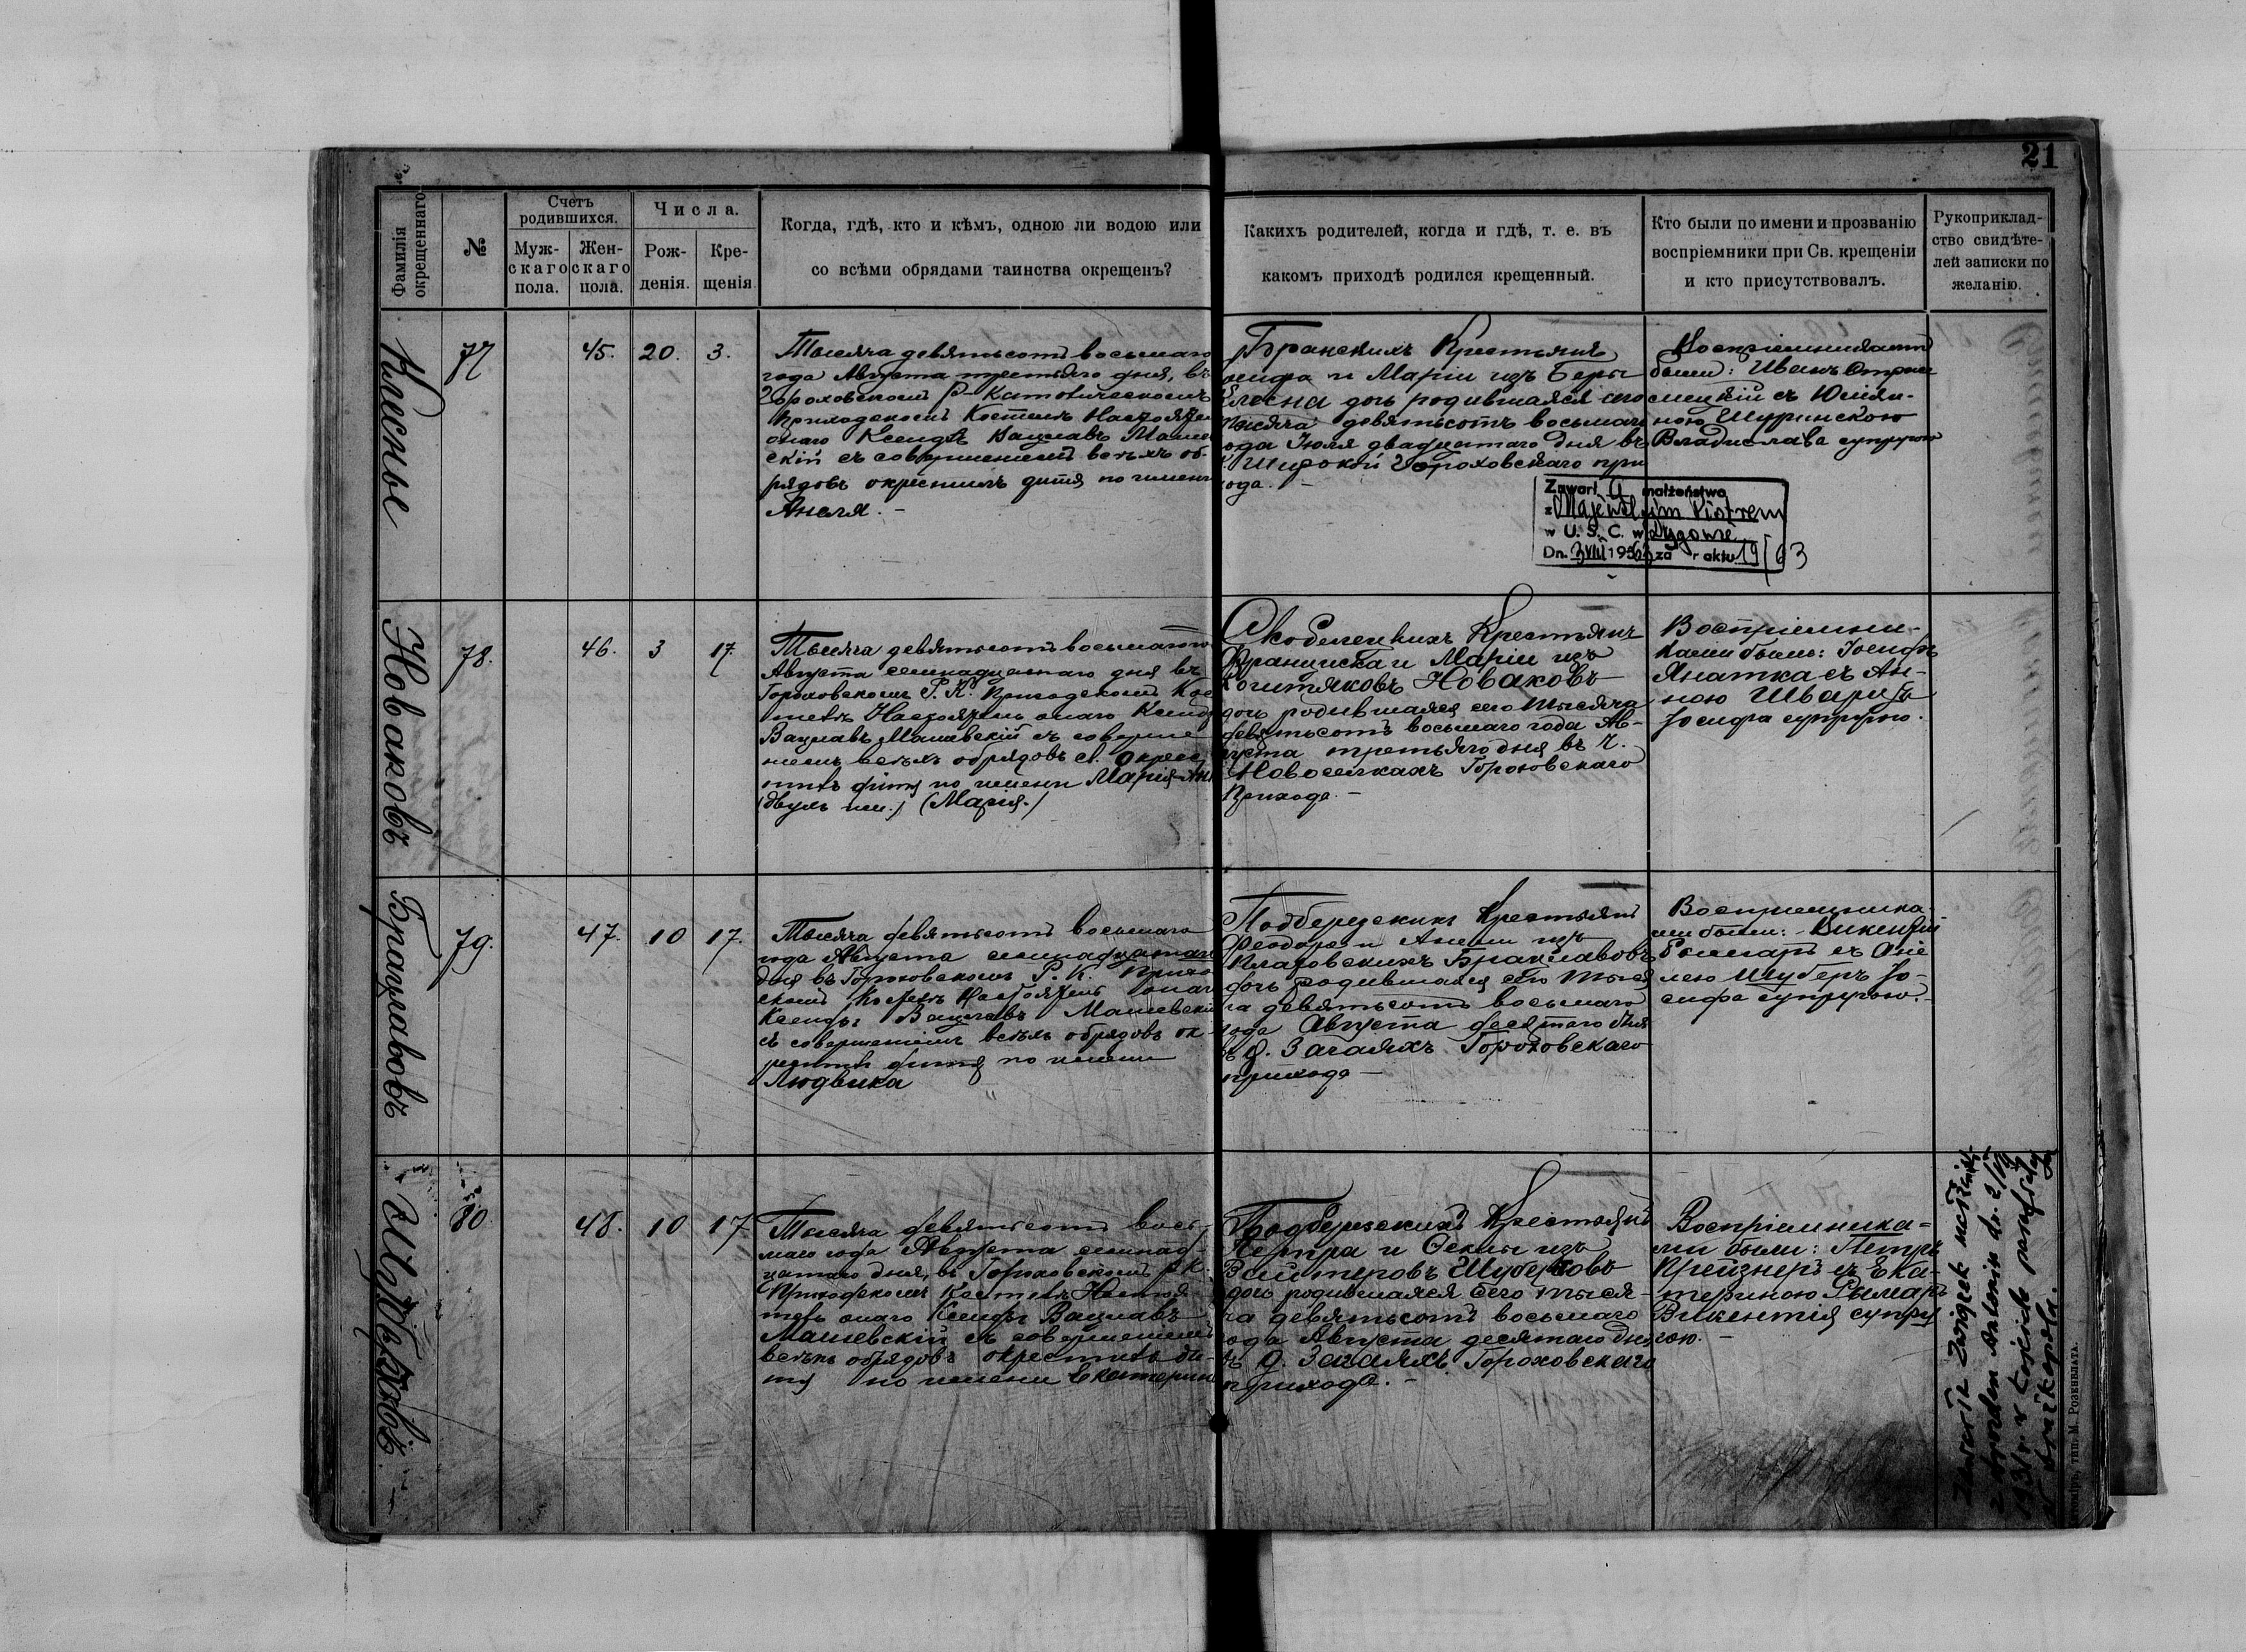 21
Фамилія
окрещеннаго
№
Счетъ
родившихся.
Муж-
скаго
пола.
Жен-
скаго
пола.
Числа.
Рож-
денія.
Кре-
щенія.
Когда, гдѣ, кто и кѣмъ, одною ли водою или
со всѣми обрядами таинства окрещенъ?
Какихъ родителей, когда и гдѣ, т. е. въ
какомъ приходѣ родился крещенный.
Кто были по имени и прозванію
воспріемники при Св. крещеніи
и кто присутствовалъ.
Рукоприклад-
ство свидѣте-
лей записки по
желанію.
77
45.
20.
3.
Тысяча девятьсотъ восьмаго
года Августа третьяго дня, въ
Гороховскомъ Р-Католическомъ
Приходскомъ Костелѣ Настояте
онаго Ксендзъ Вацлавъ Маше
скій съ совершеніемъ всѣхъ об-
рядовъ окрестилъ дитя по имени
Анеля. -
Бранскихъ Крестьянъ
осифа и Маріи изъ
дочь родившаяся сего
тысяча девятьсотъ восьмаго
ода Іюля двадцатаго дня въ
Широкой Гороховскаго при
ода. -
Воспріемниками
были: Иванъ
съ
ною
Владислава супругою
Zawarł a małżeństwo
z Majewskim Piotrem
w U. S. C. w
Dn. 3 VIII 1963 za r aktu 19/63
Новаковъ
78.
46.
3
17.
Тысяча девятьсотъ восьмаго
Августа семнадцатаго дня въ
Гороховскомъ Р. К. Приходскомъ Кос
телѣ Настоятель онаго Ксендз
Вацлавъ Машевскій съ соверше
ніемъ всѣхъ обрядовъ св. окрес
тилъ дитя по имени Марія-Ан
(двухъ им.) (Марія.)
Скобелецкихъ Крестьянъ
Франциска и Маріи изъ
Новаковъ
дочь родившаяся сего тысяча
девятьсотъ восьмаго года Ав-
густа третьяго дня въ ч.
Новоселкахъ Гороховскаго
Прихода. -
Воспріемни-
ками были: Іосифъ
съ Ан-
ною Шварцъ
Іосифа супругою.
Брацлавовъ
79.
47.
10
17.
Тысяча девятьсотъ восьмаго
года Августа семнадцатаго
дня въ Гороховскомъ Р. К. Прихо
скомъ Костелѣ Настоятель онаг
Ксендзъ Вацлавъ Машевскі
съ совершеніемъ всѣхъ обрядовъ ок
рестилъ дитя по имени
Людвика
Подберезскихъ Крестьянъ
Феодора и Анели изъ
Брацлавовъ
дочь родившаяся сего тыся
ча девятьсотъ восьмаго
года Августа десятаго дня
въ д. Загаяхъ Гороховскаго
прихода -
Воспріемника-
ми были: Викентій
съ Ане
лею Шуберъ Іо-
сифа супругою. -
80.
48.
10
17
Тысяча девятьсотъ вось-
маго года Августа семнад-
цатаго дня, въ Гороховскомъ Р. К.
Приходскомъ Костелѣ Настоя
тель онаго Ксендзъ Вацлавъ
Машевскій съ совершеніемъ
всѣхъ обрядовъ окрестилъ ди-
тя по имени Екатерин
Подберезскихъ Крестьянъ
Петра и изъ
Шубертовъ
дочь родившаяся сего тыся-
ча девятьсотъ восьмаго
ода Августа десятаго дня
въ д. Загаяхъ Гороховскаго
прихода. -
Воспріемника-
ми были: Петръ
Крейзнеръ съ Ека-
териною Рымаръ
Викентія супру
гою. -
тип. М. Розенблата.